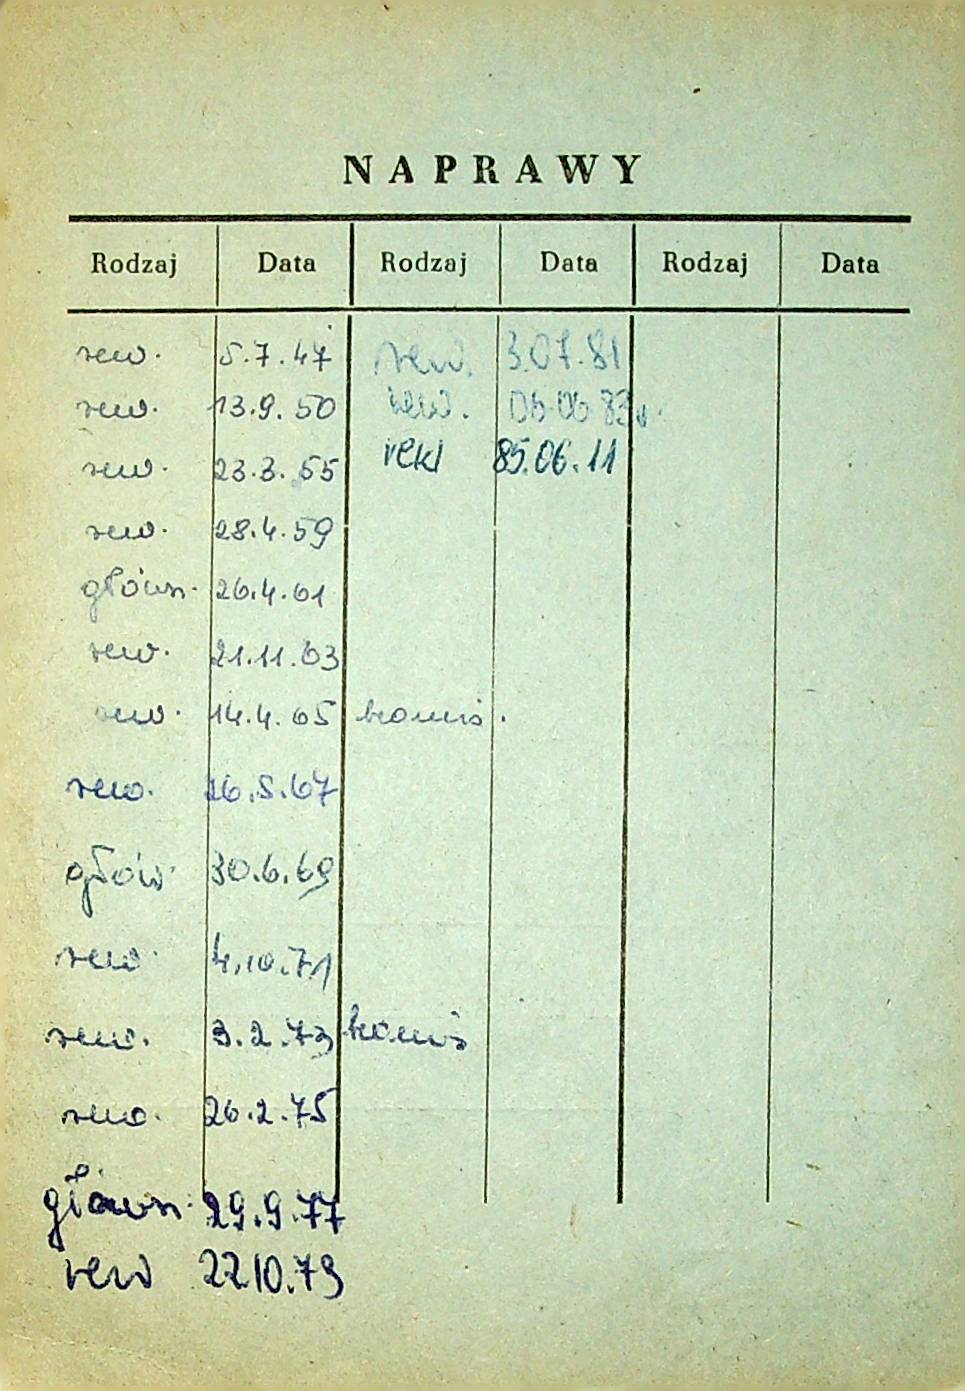 NAPRAWY
Rodzaj Data Rodzaj Data Rodzaj Data
rew. 5.7.47 rew. 3.07.81
rew. 13.9.50 rew. 06.06.83
rew. 23.3.55 rekl 85.06.11
rew. 28.4.59
główn. 26.4.61
rew. 21.11.63
rew. 14.4.65
rew. 26.5.67
głów. 30.6.69
rew. 4.10.71
rew. 3.2.73
rew. 26.2.75
główn. 29.9.77
rew 22.10.79